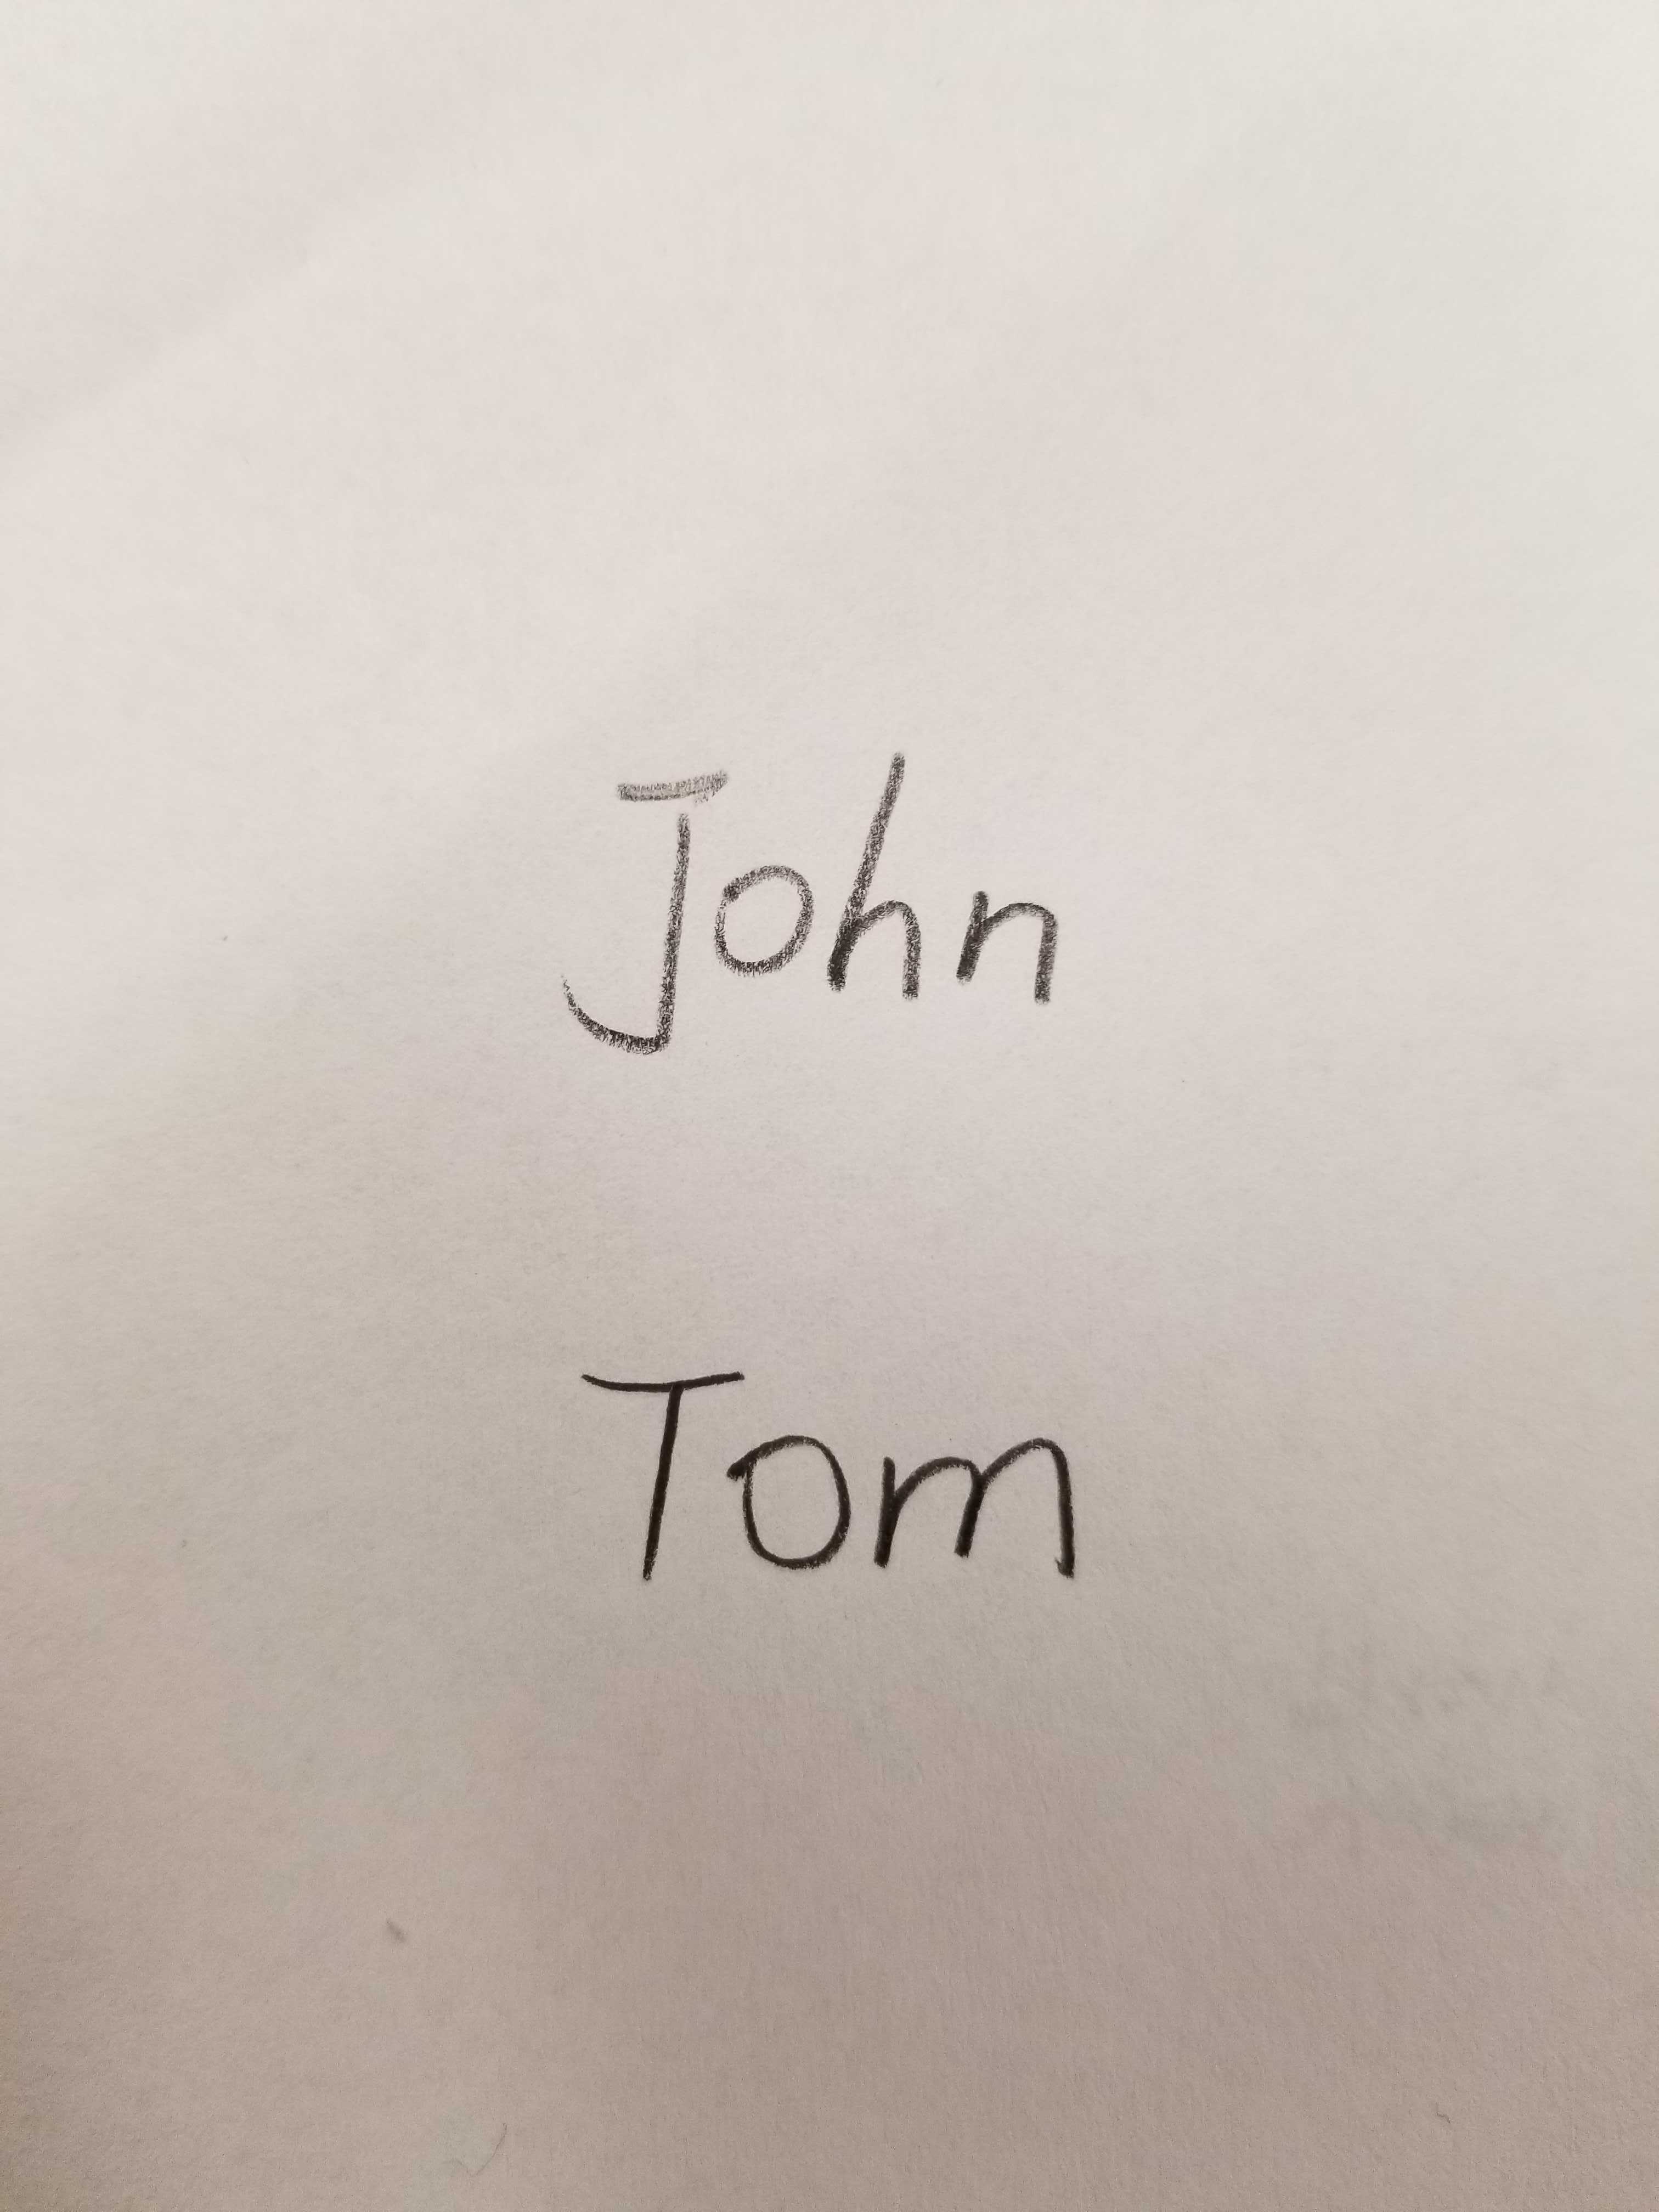 John
Tom